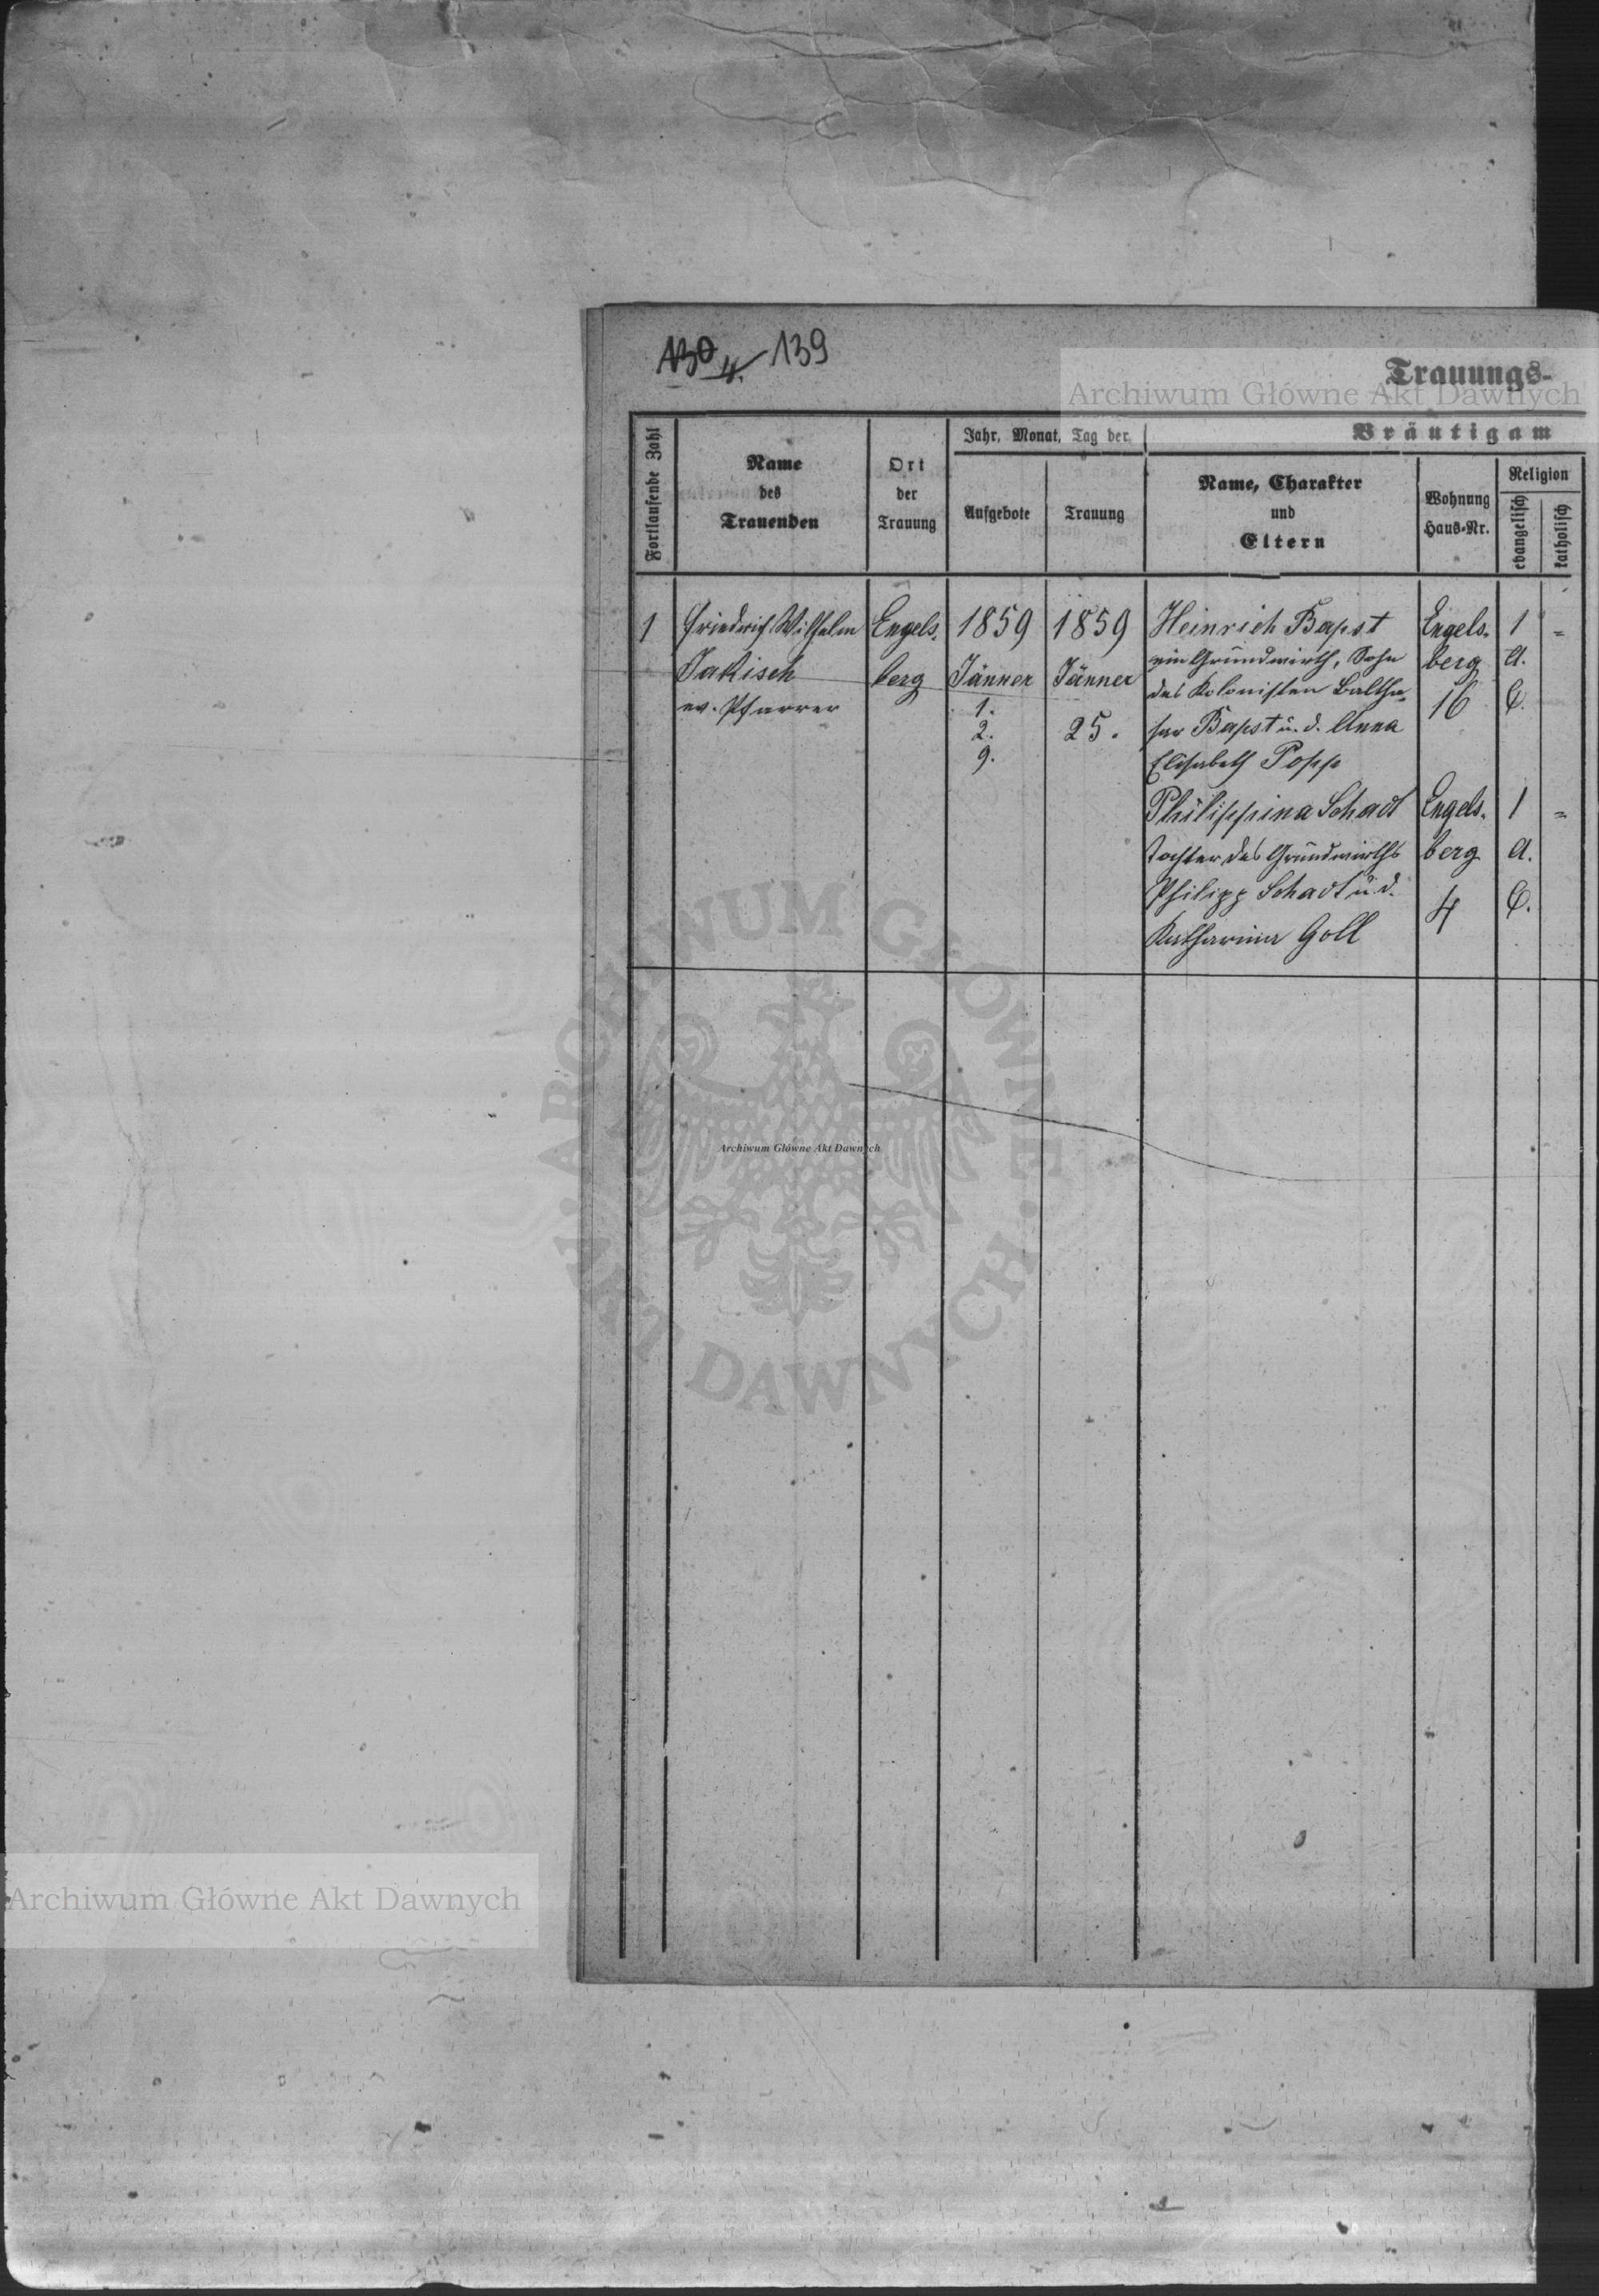 130 4. 139
Trauungs-
Archiwum Główne Akt Dawnych
Fortlaufende Zahl
Name
des
Trauenden
Ort
der
Trauung
Jahr, Monat, Tag der
Aufgebote
Trauung
Bräutigam
Name, Charakter
und
Eltern
Wohnung
Haus-Nr.
Religion
evangelisch
katholisch
1
Friedrich Wilhelm
Jakisch
ev. Pfarrer
Engels-
berg
1859
Jänner
1.
2.
9.
1859
Jänner
25.
Heinrich Bapst
ein Grundwirth, Sohn
des Kolonisten Baltha-
sar Bapst u. d. Anna
Elisabeth Popp
Engels-
berg
16
1
A.
C.
=
Philippina Schadt
Tochter des Grundwirths
Philipp Schadt u. d.
Katharina Goll
Engels-
berg
4
1
A.
C.
=
ARCHIWUM GŁÓWNE
Archiwum Główne Akt Dawnych
AKT DAWNYCH
Archiwum Główne Akt Dawnych